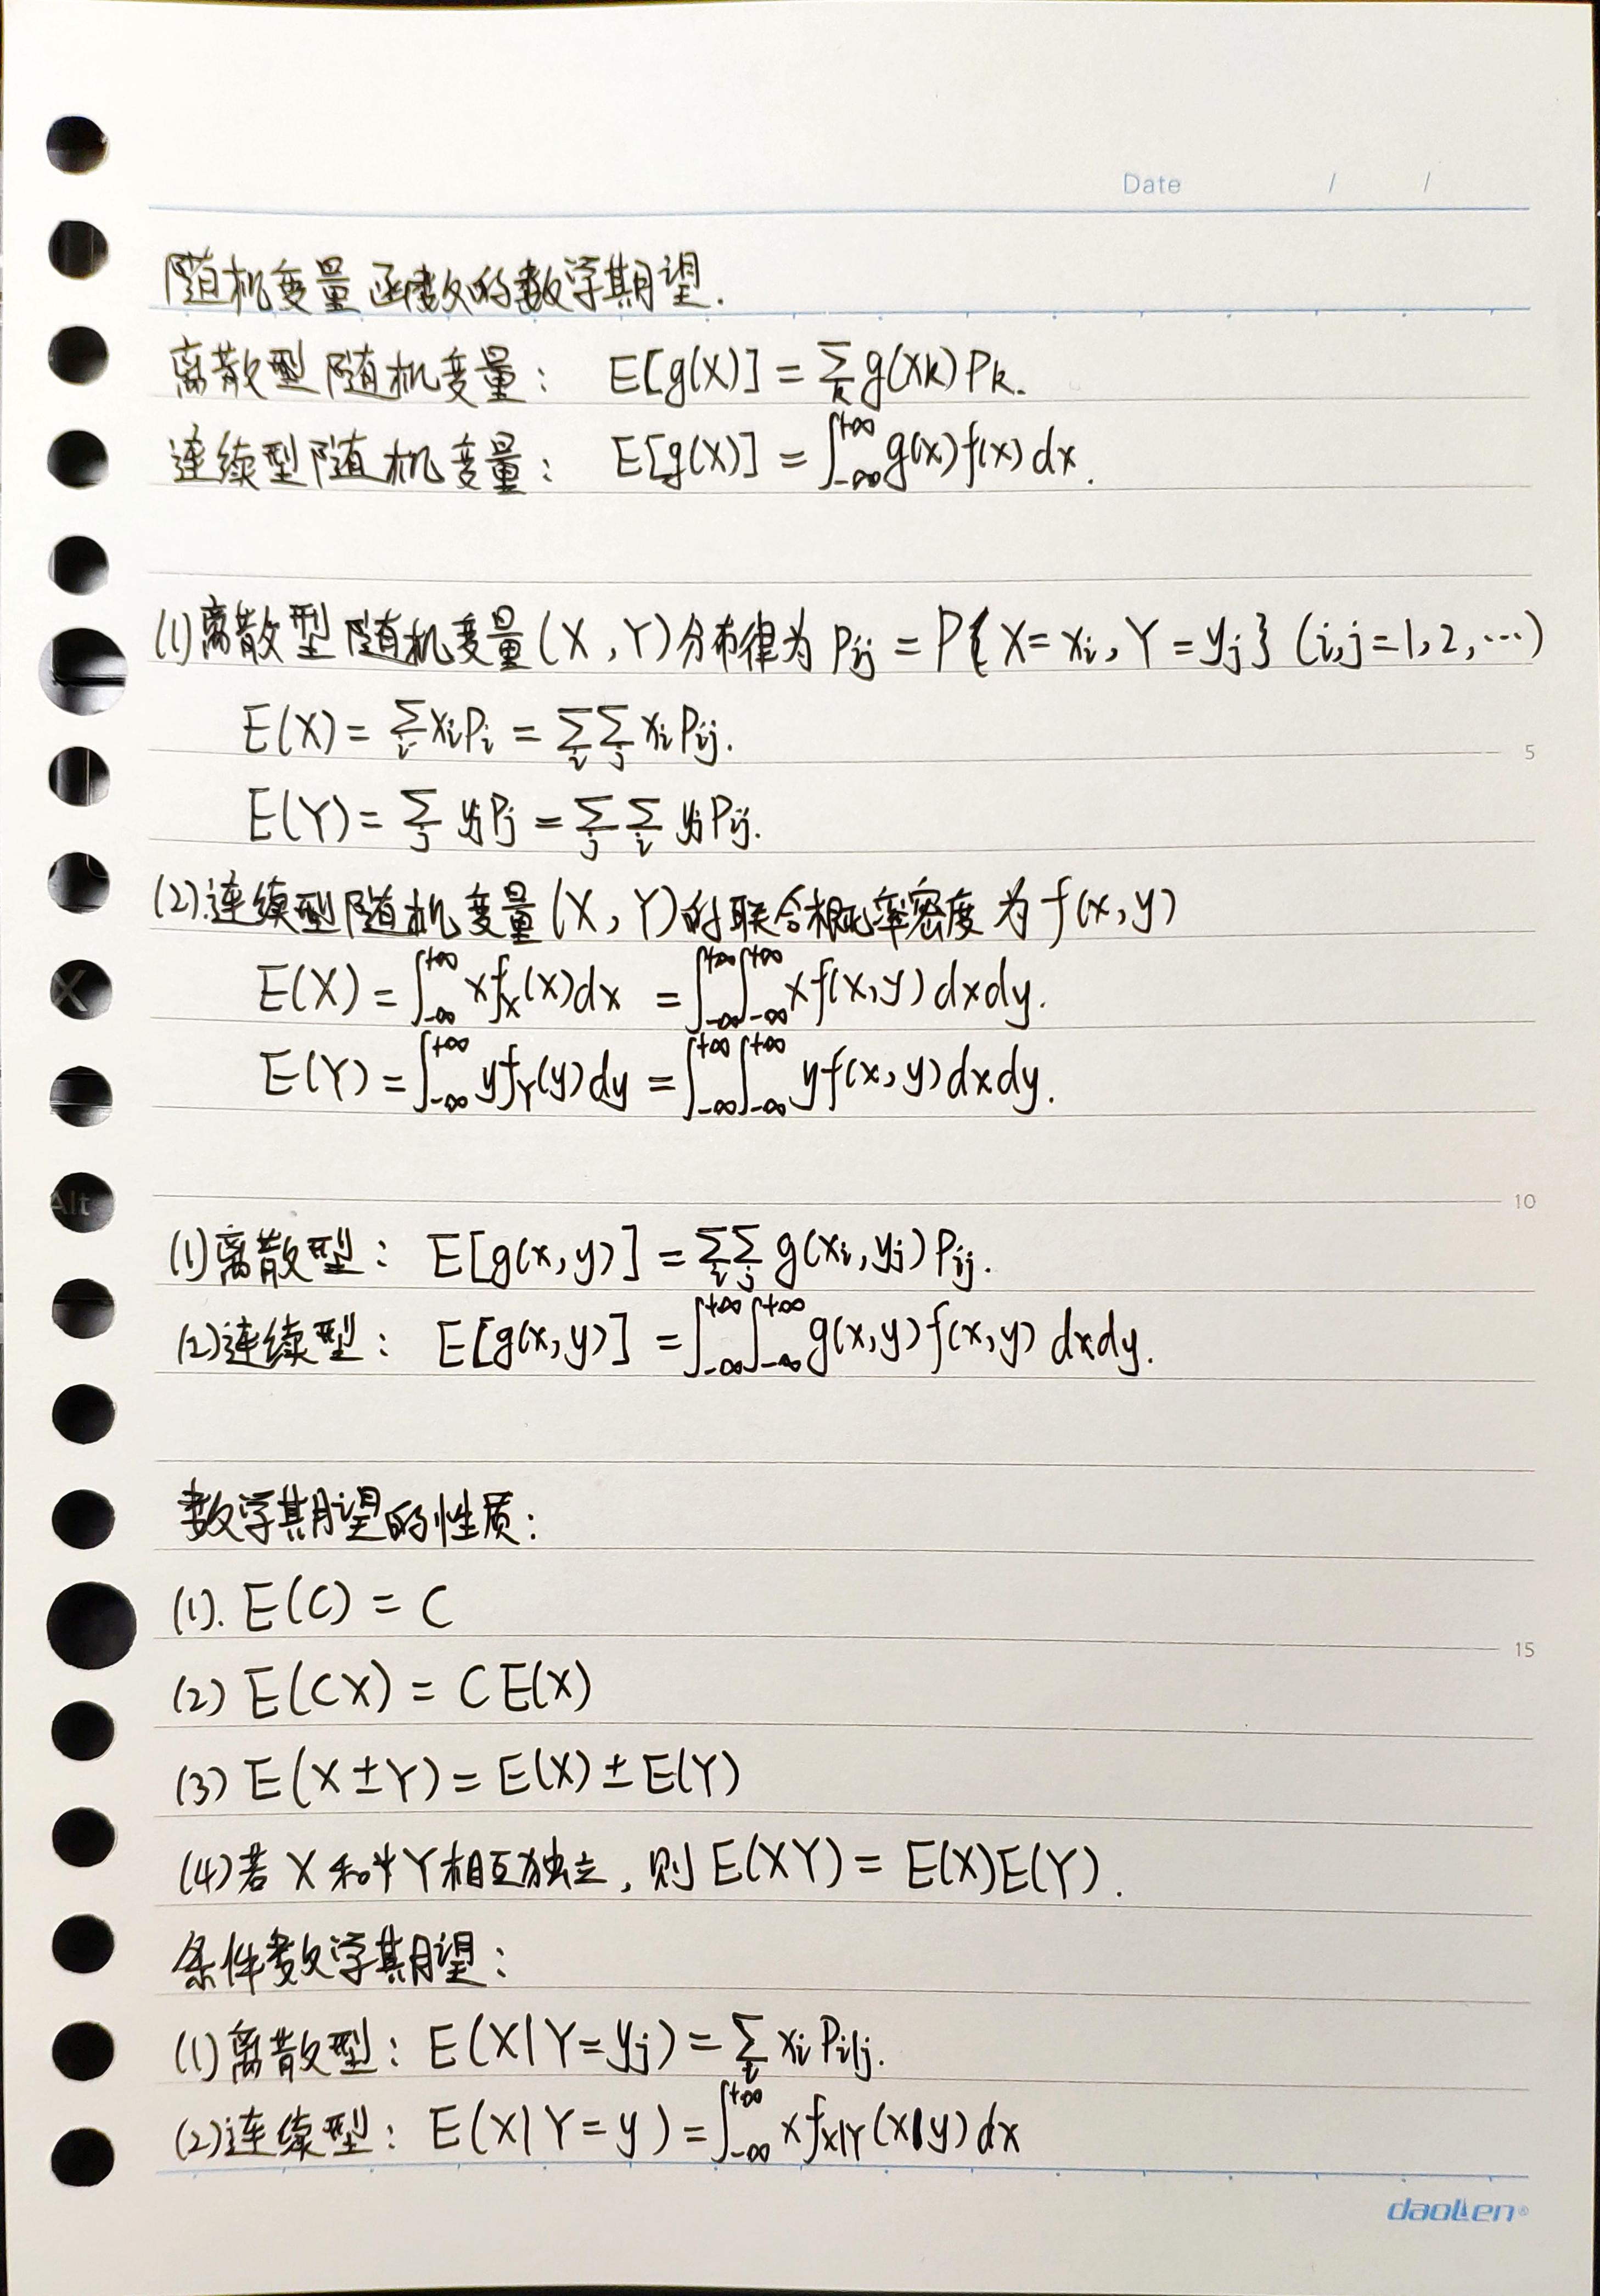 Date / /
随机变量函数的数学期望.
离散型随机变量: E[g(X)] = ∑_k g(x_k) P_k.
连续型随机变量: E[g(X)] = ∫_{-∞}^{+∞} g(x) f(x) dx.
(1) 离散型随机变量(X, Y)分布律为 P_{ij} = P{X = x_i, Y = y_j} (i,j = 1, 2, …)
E(X) = ∑_i x_i P_i = ∑_i ∑_j x_i P_{ij}.
5
E(Y) = ∑_j y_j P_j = ∑_j ∑_i y_j P_{ij}.
(2). 连续型随机变量(X, Y)的联合概率密度为 f(x, y)
E(X) = ∫_{-∞}^{+∞} x f_X(x) dx = ∫_{-∞}^{+∞} ∫_{-∞}^{+∞} x f(x, y) dxdy.
E(Y) = ∫_{-∞}^{+∞} y f_Y(y) dy = ∫_{-∞}^{+∞} ∫_{-∞}^{+∞} y f(x, y) dxdy.
10
(1) 离散型: E[g(x, y)] = ∑_i ∑_j g(x_i, y_j) P_{ij}.
(2) 连续型: E[g(x, y)] = ∫_{-∞}^{+∞} ∫_{-∞}^{+∞} g(x, y) f(x, y) dxdy.
数学期望的性质:
(1). E(C) = C
15
(2) E(CX) = C E(X)
(3) E(X ± Y) = E(X) ± E(Y)
(4) 若 X 和 Y 相互独立, 则 E(XY) = E(X)E(Y).
条件数学期望:
(1) 离散型: E(X | Y = y_j) = ∑_i x_i P_{i|j}.
(2) 连续型: E(X | Y = y) = ∫_{-∞}^{+∞} x f_{X|Y}(x|y) dx
daolen®
X
Alt